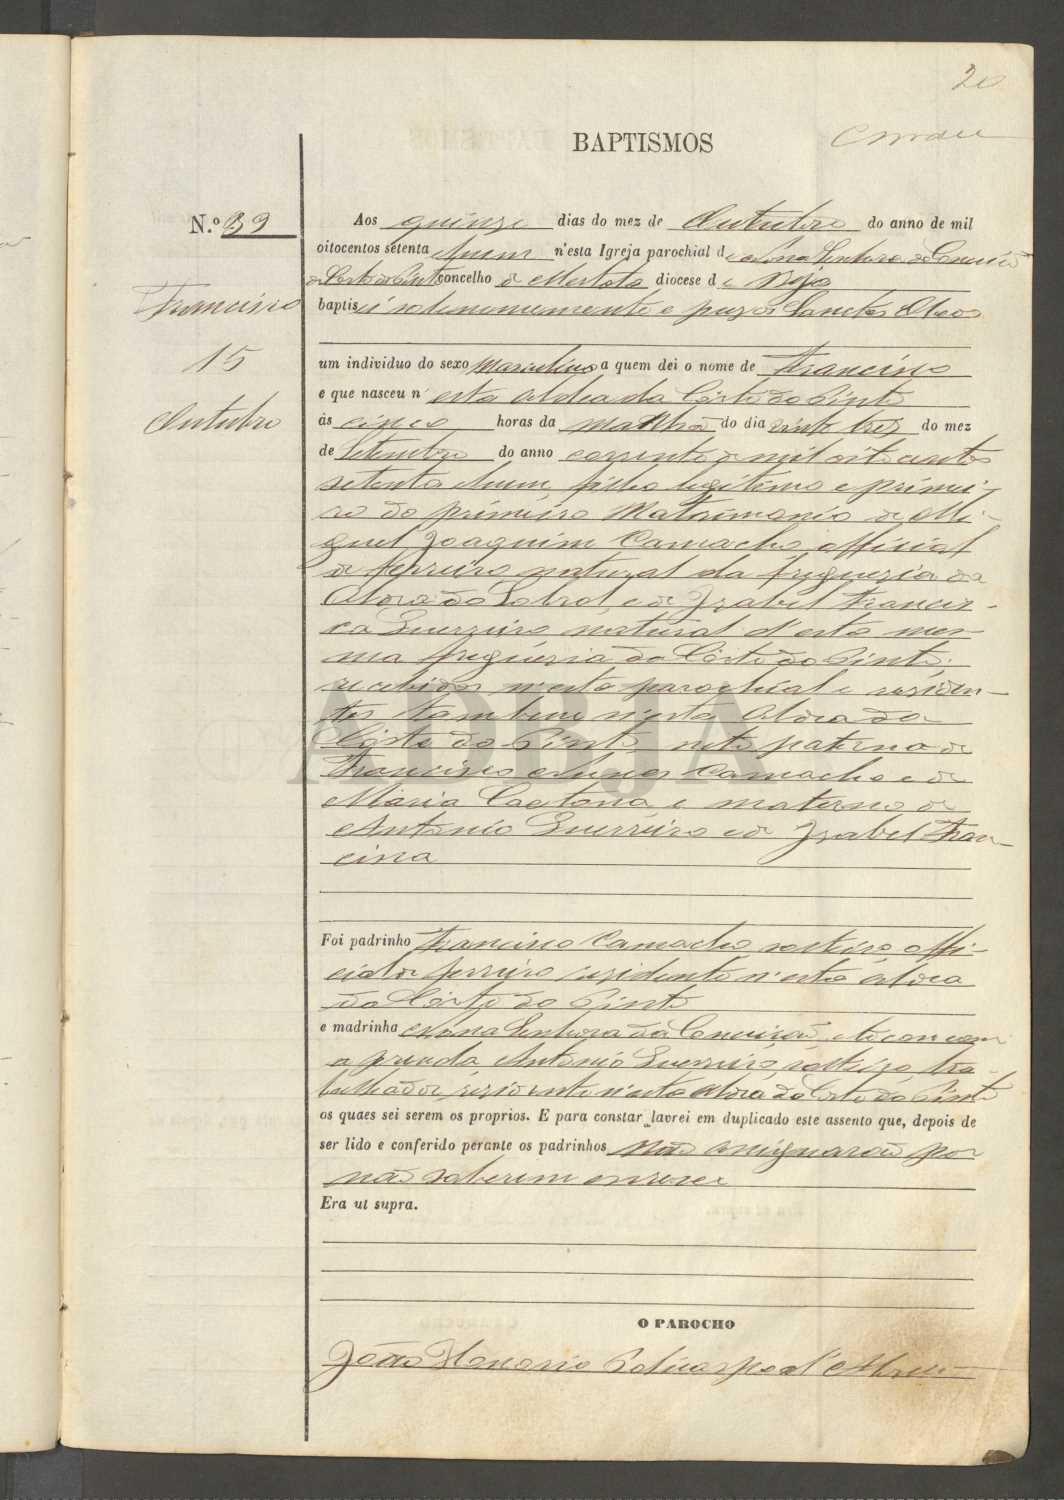 20
BAPTISMOS
N.º 39
Francisco
15
Outubro
Aos quinze dias do mez de Outubro do anno de mil
oitocentos setenta e hum n'esta Igreja parochial de Nossa Senhora da Conceição
da Corte do Pinto concelho de Mertola diocese de Beja
baptisei solemnemente e puz os Sanctos Oleos
um individuo do sexo masculino a quem dei o nome de Francisco
e que nasceu n'esta aldea da Côrte do Pinto
ás cinco horas da manhã do dia vinte trez do mez
de Setembro do anno corrente de mil oito centos
setenta e hum, filho legitimo e primei-
ro do primeiro Matrimonio de Mi-
guel Joaquim Camacho, official
de ferreiro natural da freguesia da
Aldea do Sobral, e de Izabel Francis-
ca Guerreiro natural d'esta mes-
ma freguesia da Côrte do Pinto,
recebidos n'esta parochial e residen-
tes tambem n'esta Aldea da
Côrte do Pinto, neto paterno de
Francisco Antunes Camacho e de
Maria Caetana, e materno de
Antonio Guerreiro e de Izabel Fran-
cisca
Foi padrinho Francisco Camacho solteiro offi-
cial de ferreiro residente n'esta Aldea
da Côrte do Pinto
e madrinha Nossa Senhora da Conceição, tocou com
a prenda Antonio Guerreiro, solteiro, tra-
balhador, residente n'esta Aldea da Corte do Pinto
os quaes sei serem os proprios. E para constar lavrei em duplicado este assento que, depois de
ser lido e conferido perante os padrinhos não assignarão por
não saberem escrever
Era ut supra.
O PAROCHO
João Honorio Policarpo d'
ADBJA